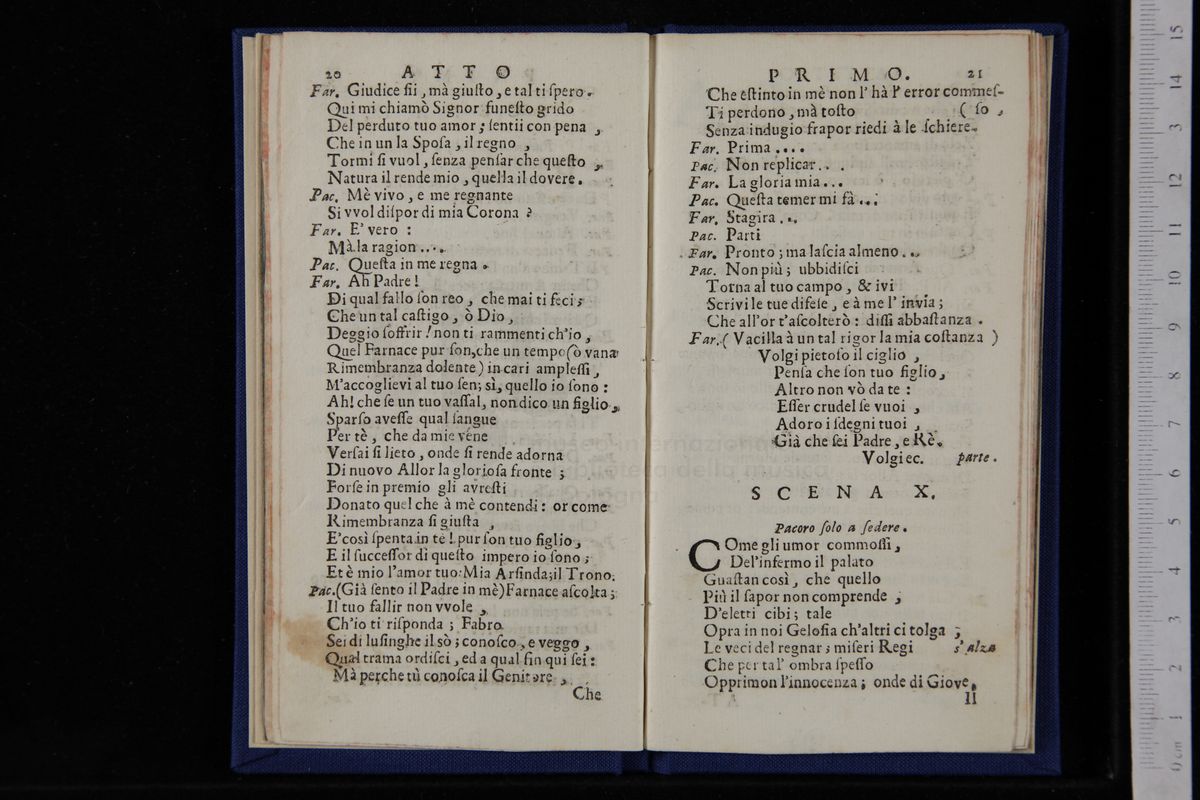 20 ATTO
Far. Giudice ſii, mà giuſto, e tal ti ſpero.
Qui mi chiamò Signor funeſto grido
Del perduto tuo amor; ſentii con pena,
Che in un la Spoſa, il regno,
Tormi ſi vuol, ſenza penſar che queſto,
Natura il rende mio, quella il dovere.
Pac. Mè vivo, e me regnante
Si vvol diſpor di mia Corona?
Far. E' vero:
Mà la ragion....
Pac. Queſta in me regna.
Far. Ah Padre!
Di qual fallo ſon reo, che mai ti feci;
Che un tal caſtigo, ò Dio,
Deggio ſoffrir! non ti rammenti ch'io,
Quel Farnace pur ſon, che un tempo (ò vana
Rimembranza dolente) in cari ampleſſi,
M'accoglievi al tuo ſen; sì, quello io ſono:
Ah! che ſe un tuo vaſſal, non dico un figlio,
Sparſo aveſſe qual ſangue
Per tè, che da mie vene
Verſai ſi lieto, onde ſi rende adorna
Di nuovo Allor la glorioſa fronte;
Forſe in premio gli avreſti
Donato quel che à mè contendi: or come
Rimembranza ſi giuſta,
E' così ſpenta in te! pur ſon tuo figlio,
E il ſucceſſor di queſto impero io ſono;
Et è mio l'amor tuo: Mia Arſinda; il Trono.
Pac. (Già ſento il Padre in mè) Farnace aſcolta;
Il tuo fallir non vvole,
Ch'io ti riſponda; Fabro
Sei di luſinghe il sò; conoſco, e veggo,
Qual trama ordiſci, ed a qual fin qui ſei:
Mà perche tù conoſca il Genitore,
Che
PRIMO. 21
Che eſtinto in mè non l' hà l' error commeſ-
Ti perdono, mà toſto (ſo,
Senza indugio frapor riedi à le ſchiere.
Far. Prima....
Pac. Non replicar...
Far. La gloria mia...
Pac. Queſta temer mi fà...
Far. Stagira...
Pac. Parti
Far. Pronto; ma laſcia almeno...
Pac. Non più; ubbidiſci
Torna al tuo campo, & ivi
Scrivi le tue difeſe, e à me l' invia;
Che all'or t'aſcolterò: diſſi abbaſtanza.
Far. (Vacilla à un tal rigor la mia coſtanza)
Volgi pietoſo il ciglio,
Penſa che ſon tuo figlio,
Altro non vò da te:
Eſſer crudel ſe vuoi,
Adoro i ſdegni tuoi,
Già che ſei Padre, e Rè.
Volgi ec. parte.
SCENA X.
Pacoro ſolo a ſedere.
COme gli umor commoſſi,
Del'infermo il palato
Guaſtan così, che quello
Più il ſapor non comprende,
D'eletti cibi; tale
Opra in noi Geloſia ch'altri ci tolga,
Le veci del regnar; miſeri Regi s'alza
Che per tal' ombra ſpeſſo
Opprimon l'innocenza; onde di Giove,
Il